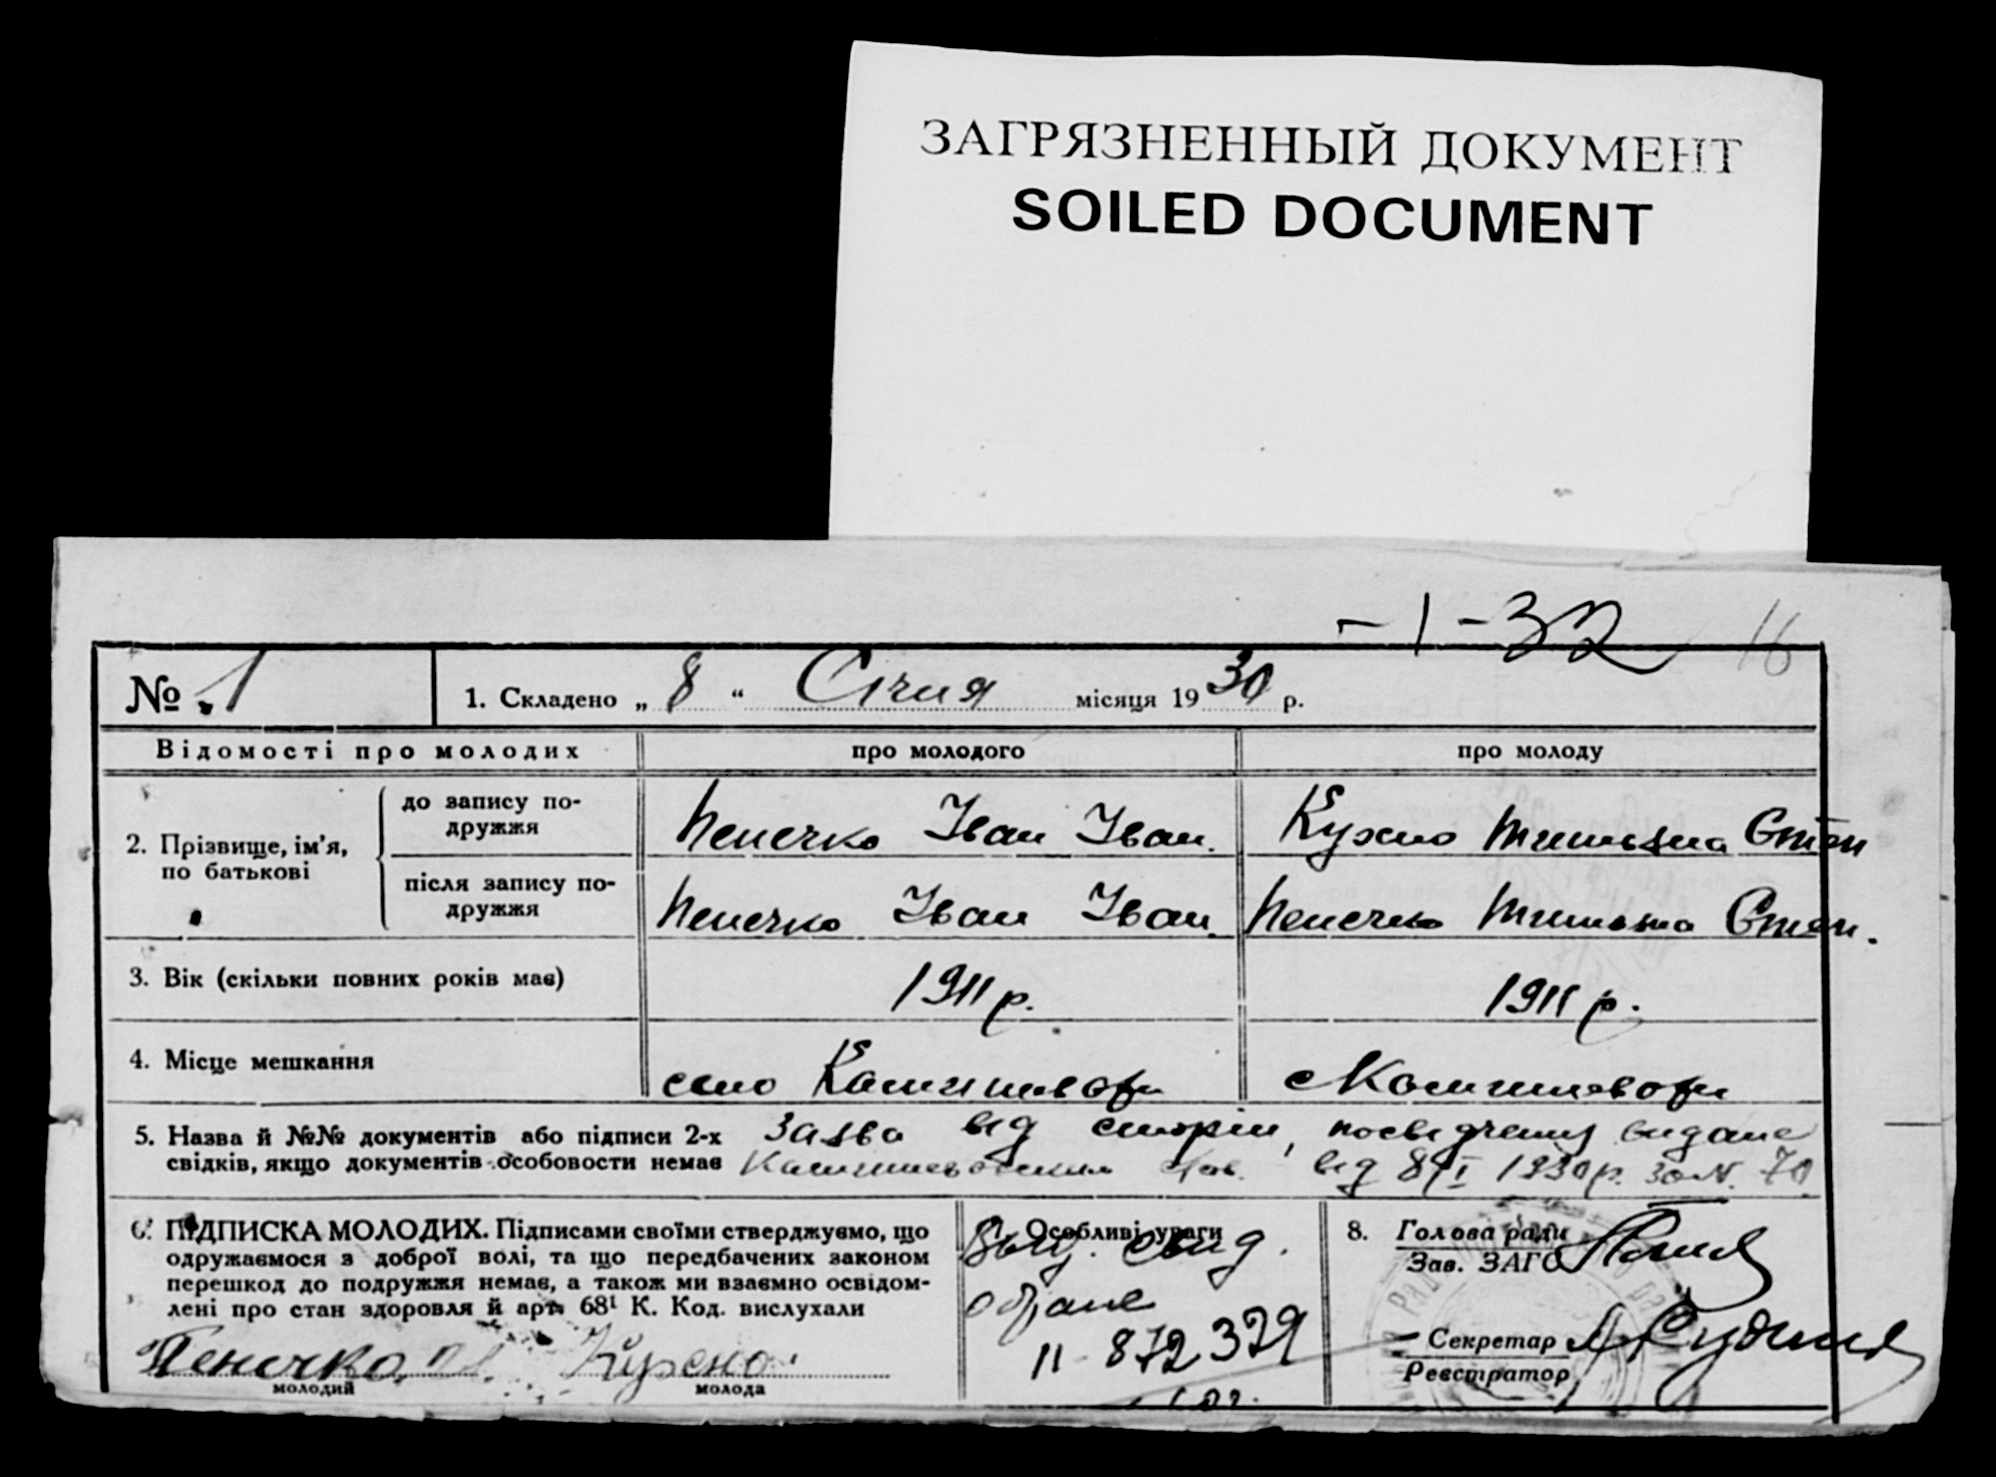 ЗАГРЯЗНЕННЫЙ ДОКУМЕНТ
SOILED DOCUMENT
-1-32 16
№ 1
1. Складено „ 8 “ Січня місяця 1930 р.
Відомості про молодих
про молодого
про молоду
2. Прізвище, ім'я, по батькові
до запису по-
дружжя
Пенечко Іван Іван.
Степ
після запису по-
дружжя
Пенечко Іван Іван.
Пенечко Степ.
3. Вік (скільки повних років має)
1911 р.
1911 р.
4. Місце мешкання
село
5. Назва й №№ документів або підписи 2-х
свідків, якщо документів особовости немає
Заява від сторін, посвідчення видане
від 8/I 1930 р. за N. 70
6. ПІДПИСКА МОЛОДИХ. Підписами своїми стверджуємо, що
одружаємося з доброї волі, та що передбачених законом
перешкод до подружжя немає, а також ми взаємно освідом-
лені про стан здоровля й арт. 68¹ К. Код. вислухали
Пенечко
молодий
молода
Особливі уваги
свид.
11-872329
8. Голова ради
Зав. ЗАГС
Секретар
Реєстратор